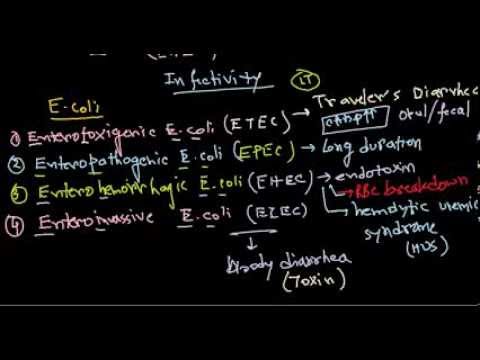 Infectivity
LT
E-coli
1) Enterotoxigenic E.coli (ETEC) → Traveler's Diarrhea
oral/fecal
2) Enteropathogenic E.coli (EPEC) → long duration
3) Enterohemorrhagic E.coli (EHEC) → endotoxin
→ RBC breakdown
→ hemolytic uremic
syndrome
(HUS)
4) Enteroinvassive E.coli (EIEC)
↓
bloody diarrhea
(Toxin)